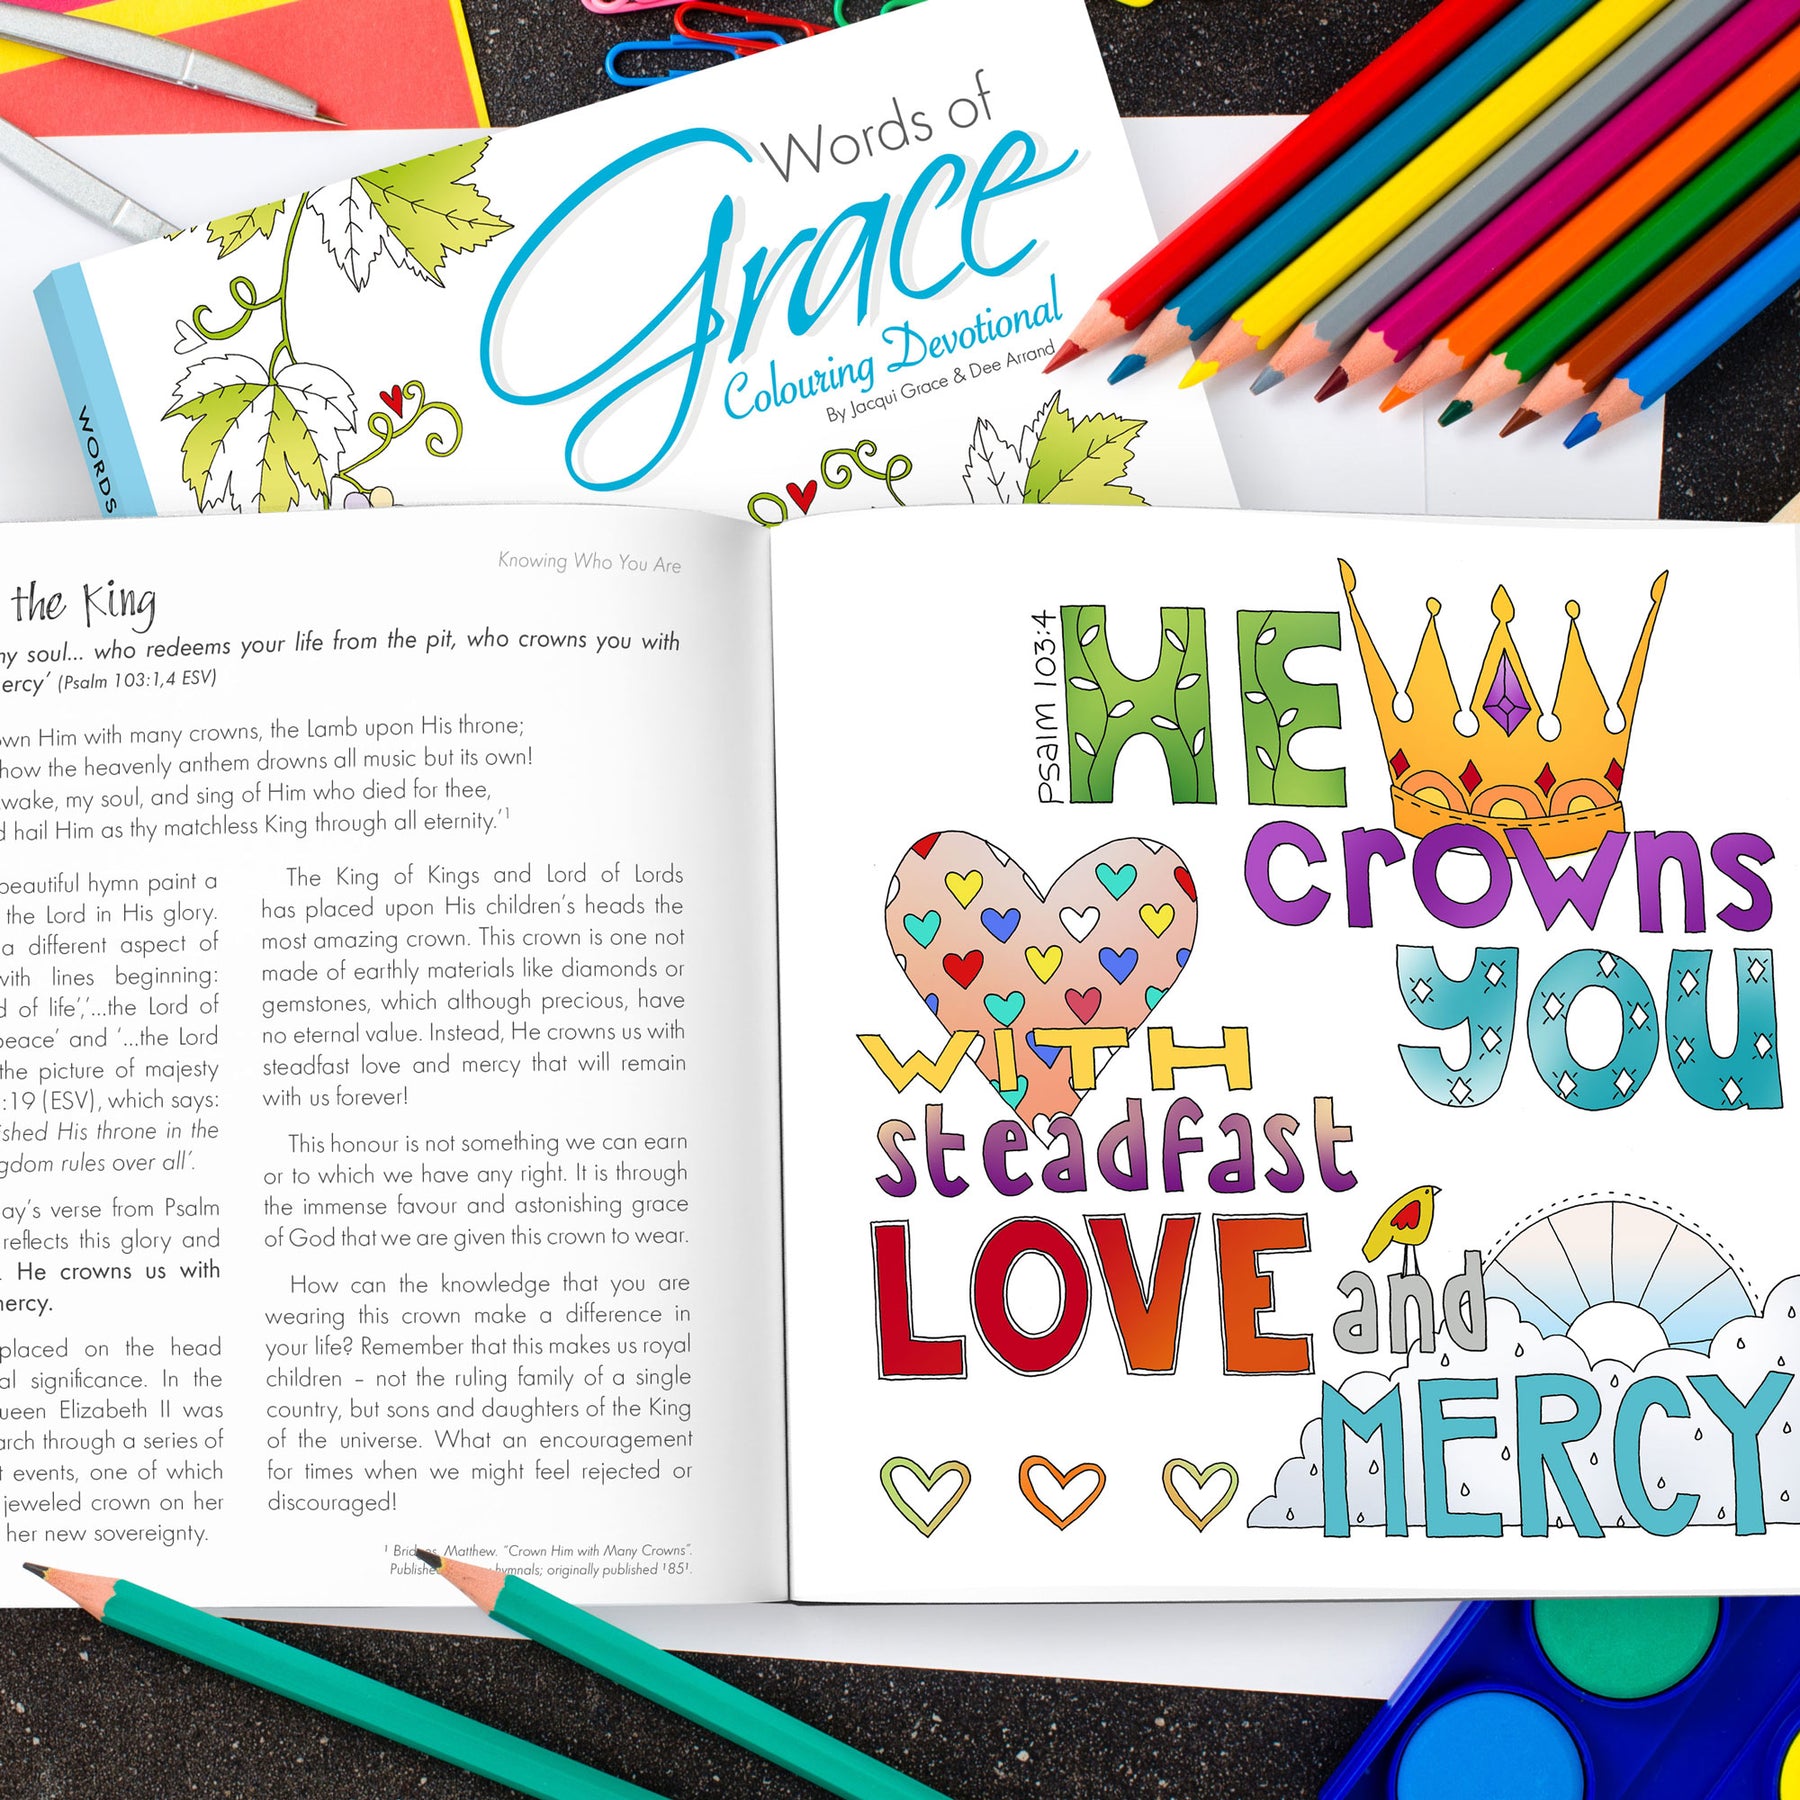 Words of
Grace
Colouring Devotional
By Jacqui Grace & Dee Arrand
WORDS
Knowing Who You Are
the King
my soul... who redeems your life from the pit, who crowns you with
ercy’ (Psalm 103:1,4 ESV)
own Him with many crowns, the Lamb upon His throne;
how the heavenly anthem drowns all music but its own!
wake, my soul, and sing of Him who died for thee,
d hail Him as thy matchless King through all eternity.’1
beautiful hymn paint a
the Lord in His glory.
a different aspect of
with lines beginning:
d of life’,‘...the Lord of
peace’ and ‘...the Lord
the picture of majesty
:19 (ESV), which says:
ished His throne in the
gdom rules over all’.
ay’s verse from Psalm
reflects this glory and
. He crowns us with
ercy.
placed on the head
al significance. In the
ueen Elizabeth II was
arch through a series of
t events, one of which
jeweled crown on her
her new sovereignty.
The King of Kings and Lord of Lords
has placed upon His children’s heads the
most amazing crown. This crown is one not
made of earthly materials like diamonds or
gemstones, which although precious, have
no eternal value. Instead, He crowns us with
steadfast love and mercy that will remain
with us forever!
This honour is not something we can earn
or to which we have any right. It is through
the immense favour and astonishing grace
of God that we are given this crown to wear.
How can the knowledge that you are
wearing this crown make a difference in
your life? Remember that this makes us royal
children – not the ruling family of a single
country, but sons and daughters of the King
of the universe. What an encouragement
for times when we might feel rejected or
discouraged!
1 Bridges, Matthew. “Crown Him with Many Crowns”.
Published hymnals; originally published 1851.
Psalm 103:4
HE
crowns
you
WITH
steadfast
LOVE and
MERCY